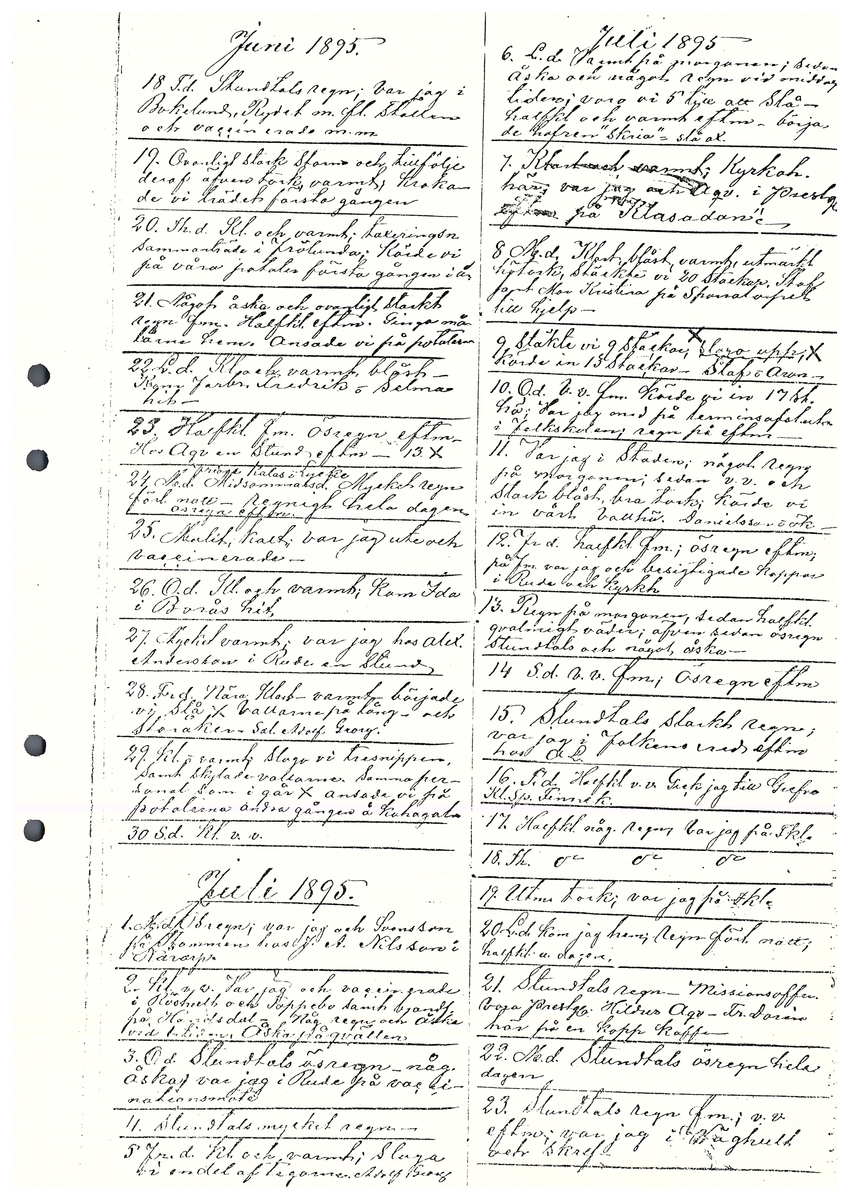 Juni 1895.
18 T.d. Stundtals regn; var jag i
Bokelund, Rydet m. fl. ställen
och vaccinerade m.m
19. Ovanligt stark storm och tillfölje
deraf äfven torkt, varmt, kroka-
de vi trädet första gången
20. Th.d. Kl. och varmt; taxeringsn
sammanträde i Frölunda. Körde vi
på våra potater första gången i år
21. Något åska och ovanligt starkt
regn fm. Halfkl eftm. Ginga må
larne hem. Ansade vi på potaterna
22. L.d. Kl och varmt, blåst-
Kom Farbr. Fredrik o Selma
hit-
23. Halfkl fm. ösregn eftm-
Hos Agv en stund eftm - 13. X
24. M.d. Midsommarsd. Mycket regn
förl. natt - regnigt hela dagen
ösregn eftm.
25. Mulit; kalt; var jag ute och
vaccinerade-
26. O.d. Kl. och varmt; kom Ida
i Borås hit,
27. Mycket varmt; var jag hos Alex.
Andersson i Rude en stund
28. Fr.d. Nära klart - varmt - började
vi slå X vallarne på lång- och
storåkern Sal. Adolf Georg.
29. Kl. o varmt; slogo vi tresnippen,
samt skylade vallarne. Samma per-
sonal som i går X ansade vi på
potaterna andra gången å kohagat
30 S.d. Kl. v. v.
Juli 1895.
1. M.d. Ösregn; var jag och Svensson
på Stommen hos J. A. Nilsson i
2. Kl. v.v. Var jag och vaccinerade
i och Toppebo samt
på Håridsdal - Någ regn och åska
vid tiden, Åska på qvällen
3. O.d Stundtals ösregn - någ.
åska; var jag i Rude på vacci-
nationsmöte
4. Stundtals mycket regn-
5 Fr.d. Kl. och varmt; Sloga
vi en del af tegarne. Adolf Georg
Juli 1895
6. L.d. Varmt på morgonen; sedan
åska och något regn vid middag
tiden; voro vi 5 till att slå-
halfkl och varmt eftm - börja
de hafren "Skria" slå ax.
7. Klart och varmt; Kyrkoh.
här; var jag och Agv. i Prestg
eftm på "Klasadans"
8 M.d. Klart, blåst, varmt, utmärkt
hötork, stäckte vi 30 stäckar, Staf
samt Mor Kristina på Sponatorpet
till hjelp-
9. Stäkte vi 9 stäckar, X sloro upp, X
körde in 15 stäckar - Staf o Aron-
10. O.d. V. v. fm. Körde vi in 17 st.
hö; Var jag med på terminsafslutn
i Folkskolan; regn på eftm -
11. Var jag i Staden; något regn
på morgonen; sedan v.v. och
stark blåst, bra tork; körde vi
in vårt vallhö. Danielsson sök-
12. Fr.d. halfkl fm.; ösregn eftm;
på fm. var jag och besigtigade koppor
i Rude och Kyrkh
13. Regn på morgonen, sedan halfkl.
qvalmigt väder; äfven sedan ösregn
stundtals och något åska-
14 S.d. v. v. fm; Ösregn eftm
15. Stundtals starkt regn;
var jag i Folkens red eftm
hos
16. T.d. Halfkl v.v. Gick jag till Grefva
Kl. Sp. Finnek.
17. Halfkl någ. regn; Var jag på Ekl.
18. Th. do do do
19. Utm. tork; var jag på Ekl.
20. L.d. kom jag hem; regn förl. natt;
halfkl. u dagen,
21. Stundtals regn - Missionsoffer.
voro Prestg. Hildur Agv - Fr. Dorin
här på en kopp kaffe-
22. M.d. Stundtals ösregn hela
dagen
23. Stundtals regn fm.; v. v
eftm; var jag i Våghult